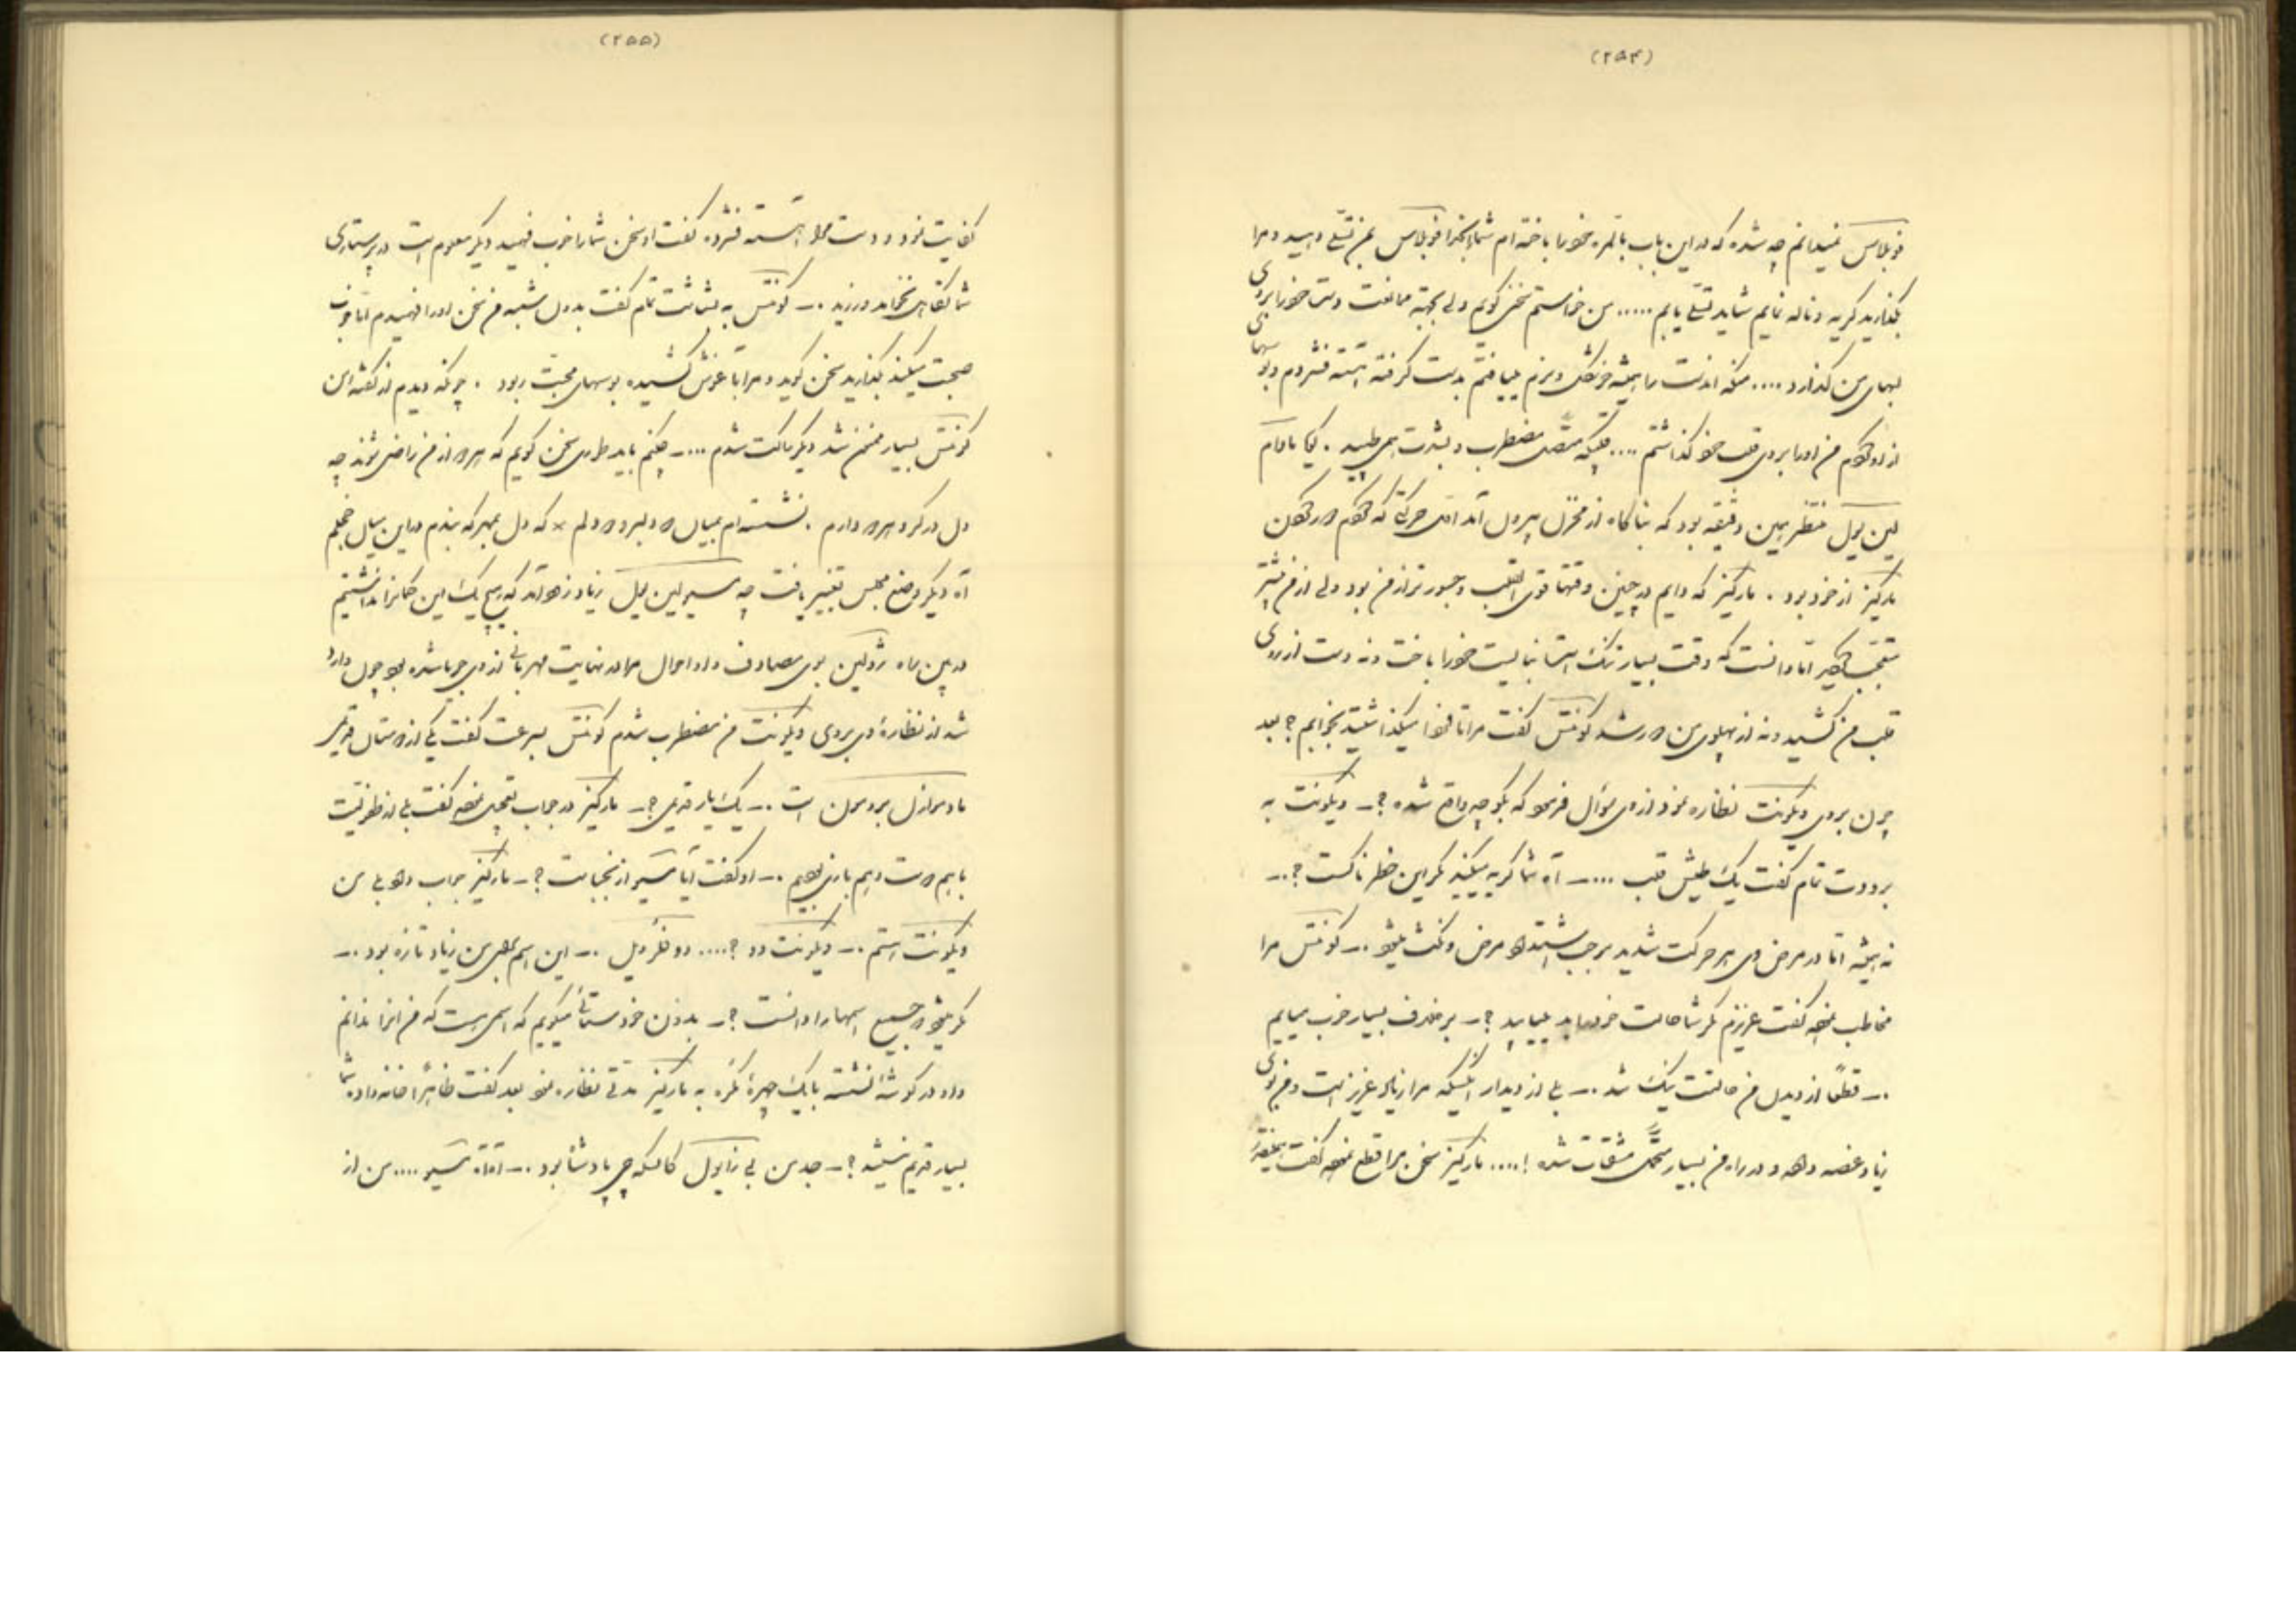 (۲۵۴)
فوبلاس نمیدانم چه شده که در این باب بالمره خود را باخته ام شما بخدا فوبلاس بمن تسلی دهید و مرا
بگذارید گریه و ناله نمایم شاید تسلی یابم ..... من خواستم سخن گویم ولی بجهة ممانعت دست خود را بروی
لبهای من گذارد .... منکه اندست را همیشه خوشگل و نرم مییافتم بدست گرفته آهسته فشردم و بوسهای
از او من او را بروی قلب خود گذاشتم .... مضطرب و بشدت همی طپید . مادام
لین یول منتظر همین دقیقه بود که بناگاه از منزل بیرون آمد اول حرکتی که
مارکیز از خود برد . مارکیز که دایم در چنین وقتها قوی القلب و جسور تر از من بود ولی از من بیشتر
متعجب اما دانست که وقت بسیار تنگ است نبایست خود را باخت و نه دست از روی
قلب من کشید و نه از پهلوی من دور شد کونتس گفت مرا تا فردا میگذاشتید بخوابم ؟ بعد
چون بروی ویکونت نظاره نمود از وی سؤال فرمود که بگو چه واقع شده ؟ ـ ویکونت به
برودت تمام گفت یک طپش قلب .... ـ آه شما گریه میکنید مگر این خطرناکست ؟ ..ـ
نه همیشه اما در مرض وی هر حرکت شدید موجب اشتداد مرض و نکث میشود .ـ کونتس مرا
مخاطب نموده گفت عزیزم مگر شما حالت خود را بد مییابید ؟ ـ بر خلاف بسیار خوب میبایم
.ـ قطعًا از دیدن من حالتت نیک شد .ـ بلی از دیدار انکسیکه مرا زیاد عزیز است و من بوی
زیاد غصه داده و در راه من بسیار متحمل مشقات شده ! .... مارکیز سخن مرا قطع نموده گفت همینقدر
(۲۵۵)
کفایت نمود و دست مرا آهسته فشرده گفت او سخن شما را خوب فهمید دیگر معلوم است در پرستاری
شما تکاهل نخواهد ورزید .ـ کونتس به بشاشت تمام گفت بدون شبهه من سخن او را فهمیدم اما خوب
صحبت میکند بگذارید سخن گوید و مرا باغوش کشیده بوسهای محبت ربود . چونکه دیدم از گفته من
کونتس بسیار ممنون شد دیگر ساکت شدم .... ـ چکنم باید طوری سخن گویم که هر دو از من راضی شوند چه
دل در گرو هر دو دارم . نشسته ام بمیان دو دلبر و دو دلم × که دل بمهر که بندم در این میان خجلم
آه دیگر وضع مجلس تغییر یافت چه مسیو لین یول زیاد زود آمد که هیچ یک این گمانرا نداشتیم
در بین راه ژوکین بوی مصادف و او احوال مرا در نهایت مهربانی از وی جویا شده بود چون وارد
شد از نظارهٔ وی بروی ویکونت من مضطرب شدم کونتس بسرعت گفت یکی از دوستان قدیمی
مادموازل برومون است .ـ یک یار قدیمی ؟ ـ مارکیز در جواب تعجب نموده گفت بلی از طفولیت
باهم دوست و هم بازی بودیم .ـ او گفت آیا مسیو از نجباست ؟ ـ مارکیز جواب داد بلی من
ویکونت هستم .ـ ویکونت دو ؟ .... دو فلرویل .ـ این اسم بمن زیاد تازه بود .ـ
مگر میشود جمیع اسمها را دانست ؟ ـ بدون خودستائی میگویم که اسمی نیست که من انرا ندانم
و او در گوشه نشسته بایک چهرهٔ مکره به مارکیز مدتی نظاره نمود بعد گفت ظاهراً خانواده شما
بسیار قدیم نیستند ؟ ـ جد من بی زایول کالسکه چی پادشاه بود .ـ آه آه مسیو .... من از